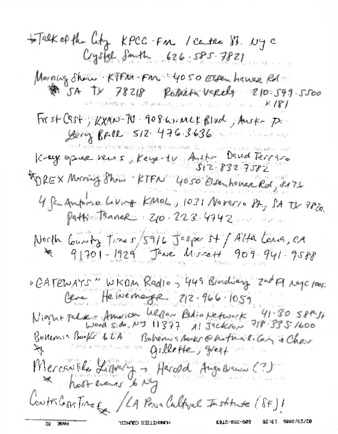 *Talk of the City KPCC-FM / Centre St. NYC
Crystal Smith 626-585-7821
Morning Show - KTFM-FM 4050 Eisenhauer Rd
* SA TX 78218 Roberta 210-599-5500
x181
First Cast; KXAN-TV - 908 W. MLK Blvd, Austin TX
512-476-3636
news, Keye-tv Austin David
512-832-7582
*DREX Morning Show - KTFN 4050 Eisenhauer Rd,
4 San Antonio Living KMOL, 1031 Navarro St, SA TX
Patti Tanner 210-223-4742
North County Times / 5916 Jasper St / Alta Loma, CA
* 91701-1929 Jane 909-941-9588
"GATEWAYS" WKDM Radio, 449 Broadway 2nd Fl NYC
Gene 212-966-1059
American Urban Radio Network 41-30 58th St
Woodside, NY 11377 Al Jackson 718-335-1600
Bohemia Books 6 LA Bohemia Books@ → Cher
* Gillette, great
Mercantile Library → Harold Augenbraum (?)
host event 6 NY
Contra Costa Times / LA Cultural Institute (SF)!
*
HUMANITIES COUNCIL